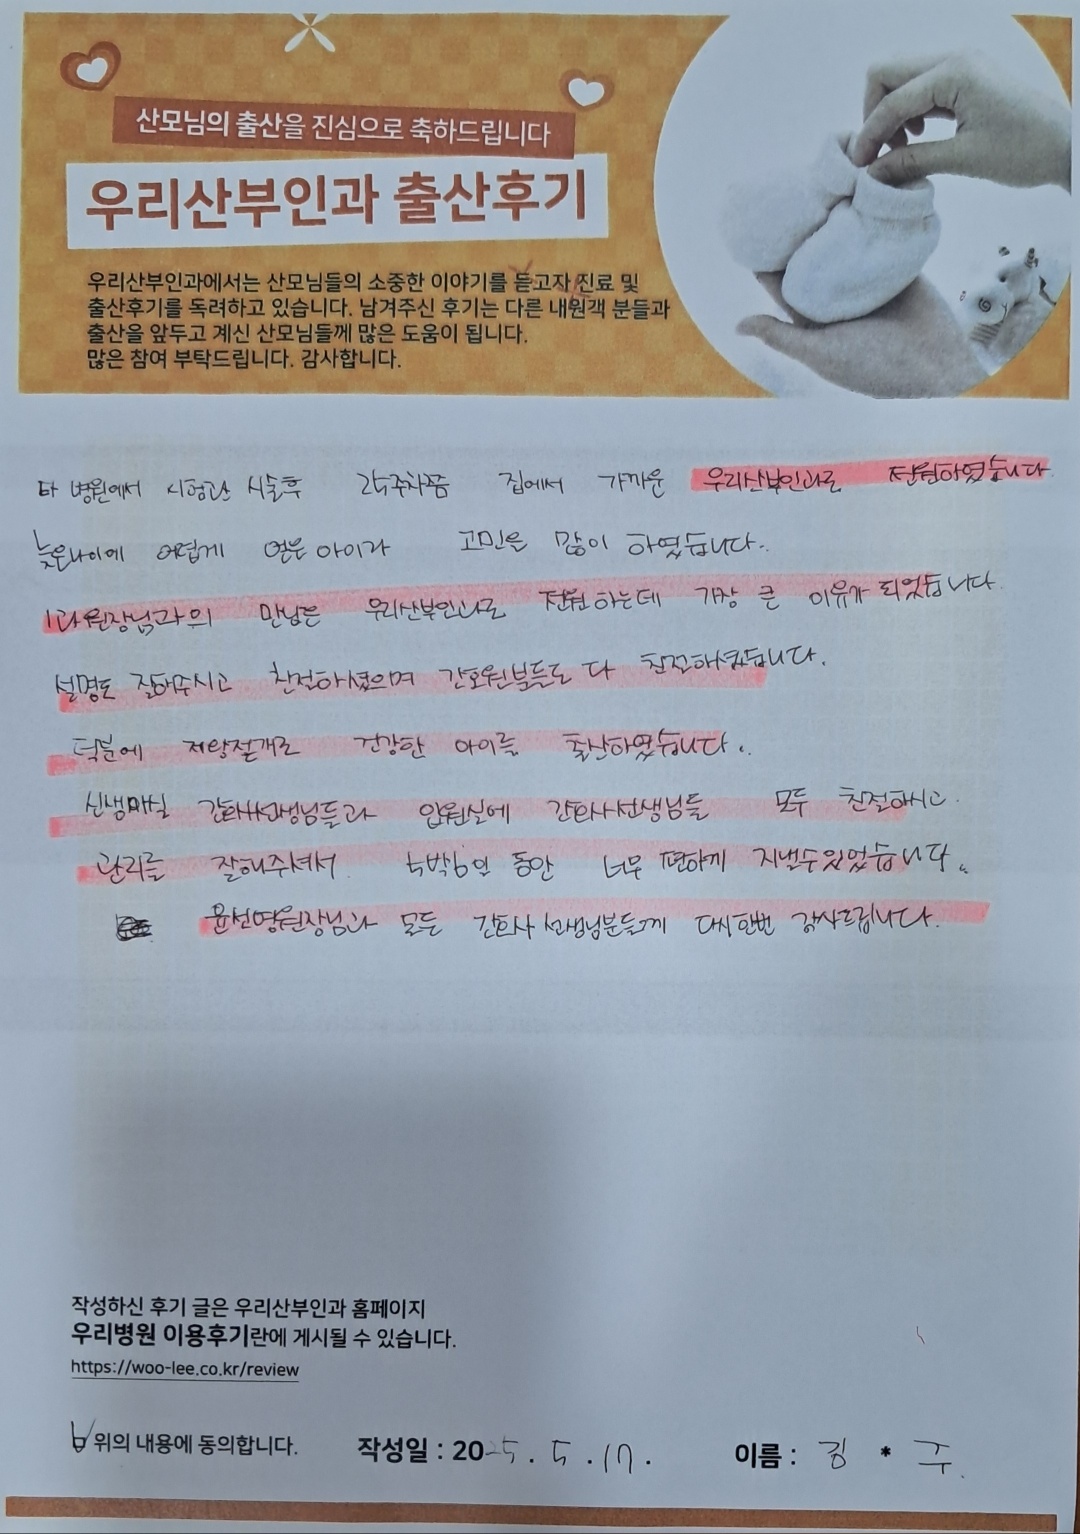 산모님의 출산을 진심으로 축하드립니다
우리산부인과 출산후기
우리산부인과에서는 산모님들의 소중한 이야기를 듣고자 진료 및
출산후기를 독려하고 있습니다. 남겨주신 후기는 다른 내원객 분들과
출산을 앞두고 계신 산모님들께 많은 도움이 됩니다.
많은 참여 부탁드립니다. 감사합니다.
타 병원에서 시험관 시술후 24주차쯤 집에서 가까운 우리산부인과로 전원하였습니다
늦은나이에 어렵게 얻은 아이라 고민을 많이 하였습니다..
1과원장님과의 만남은 우리산부인과로 전원 하는데 가장 큰 이유가 되었습니다.
설명도 잘해주시고 친절하셨으며 간호원분들도 다 친절하셨습니다.
덕분에 제왕절개로 건강한 아이를 출산하였습니다..
신생아실 간호사선생님들과 입원실에 간호사선생님들 모두 친절하시고
관리를 잘해주셔서 5박6일 동안 너무 편하게 지낼수있었습니다..
윤선영원장님과 모든 간호사 선생님분들께 다시한번 감사드립니다.
작성하신 후기 글은 우리산부인과 홈페이지
우리병원 이용후기란에 게시될 수 있습니다.
https://woo-lee.co.kr/review
위의 내용에 동의합니다. 작성일 : 2025. 5. 17. 이름 : 김 * 주.